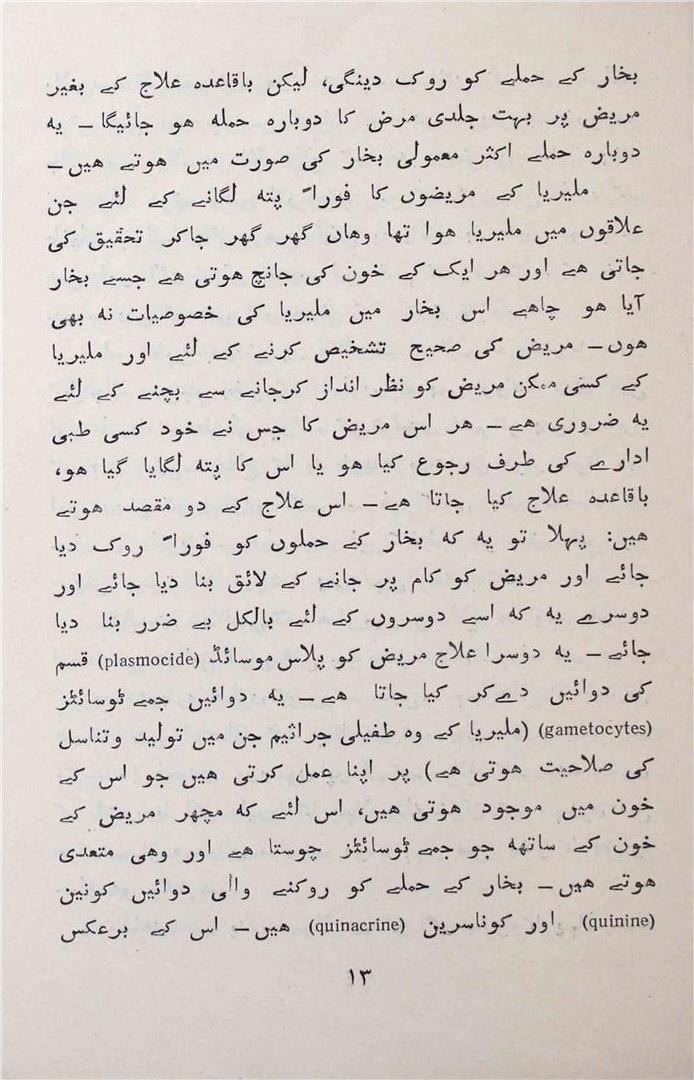 بخار کے حملے کو روک دینگی، لیکن باقاعدہ علاج کے بغیر
مریض پر بہت جلدی مرض کا دوبارہ حملہ ہو جائیگا۔ یہ
دوبارہ حملے اکثر معمولی بخار کی صورت میں ہوتے ہیں۔
ملیریا کے مریضوں کا فوراً پتہ لگانے کے لئے جن
علاقوں میں ملیریا ہوا تھا وہاں گھر گھر جاکر تحقیق کی
جاتی ہے اور ہر ایک کے خون کی جانچ ہوتی ہے جسے بخار
آیا ہو چاہے اس بخار میں ملیریا کی خصوصیات نہ بھی
ہوں۔ مریض کی صحیح تشخیص کرنے کے لئے اور ملیریا
کے کسی ممکن مریض کو نظر انداز کرجانے سے بچنے کے لئے
یہ ضروری ہے۔ ہر اس مریض کا جس نے خود کسی طبی
ادارے کی طرف رجوع کیا ہو یا اس کا پتہ لگایا گیا ہو،
باقاعدہ علاج کیا جاتا ہے۔ اس علاج کے دو مقصد ہوتے
ہیں: پہلا تو یہ کہ بخار کے حملوں کو فوراً روک دیا
جائے اور مریض کو کام پر جانے کے لائق بنا دیا جائے اور
دوسرے یہ کہ اسے دوسروں کے لئے بالکل بے ضرر بنا دیا
جائے۔ یہ دوسرا علاج مریض کو پلاس موسائڈ (plasmocide) قسم
کی دوائیں دےکر کیا جاتا ہے۔ یہ دوائیں جمےٹوسائٹز
(gametocytes) (ملیریا کے وہ طفیلی جراثیم جن میں تولید وتناسل
کی صلاحیت ہوتی ہے) پر اپنا عمل کرتی ہیں جو اس کے
خون میں موجود ہوتی ہیں، اس لئے کہ مچھر مریض کے
خون کے ساتھ جو جمےٹوسائٹز چوستا ہے اور وہی متعدی
ہوتے ہیں۔ بخار کے حملے کو روکنے والی دوائیں کونین
(quinine) اور کوناسرین (quinacrine) ہیں۔ اس کے برعکس
۱۳